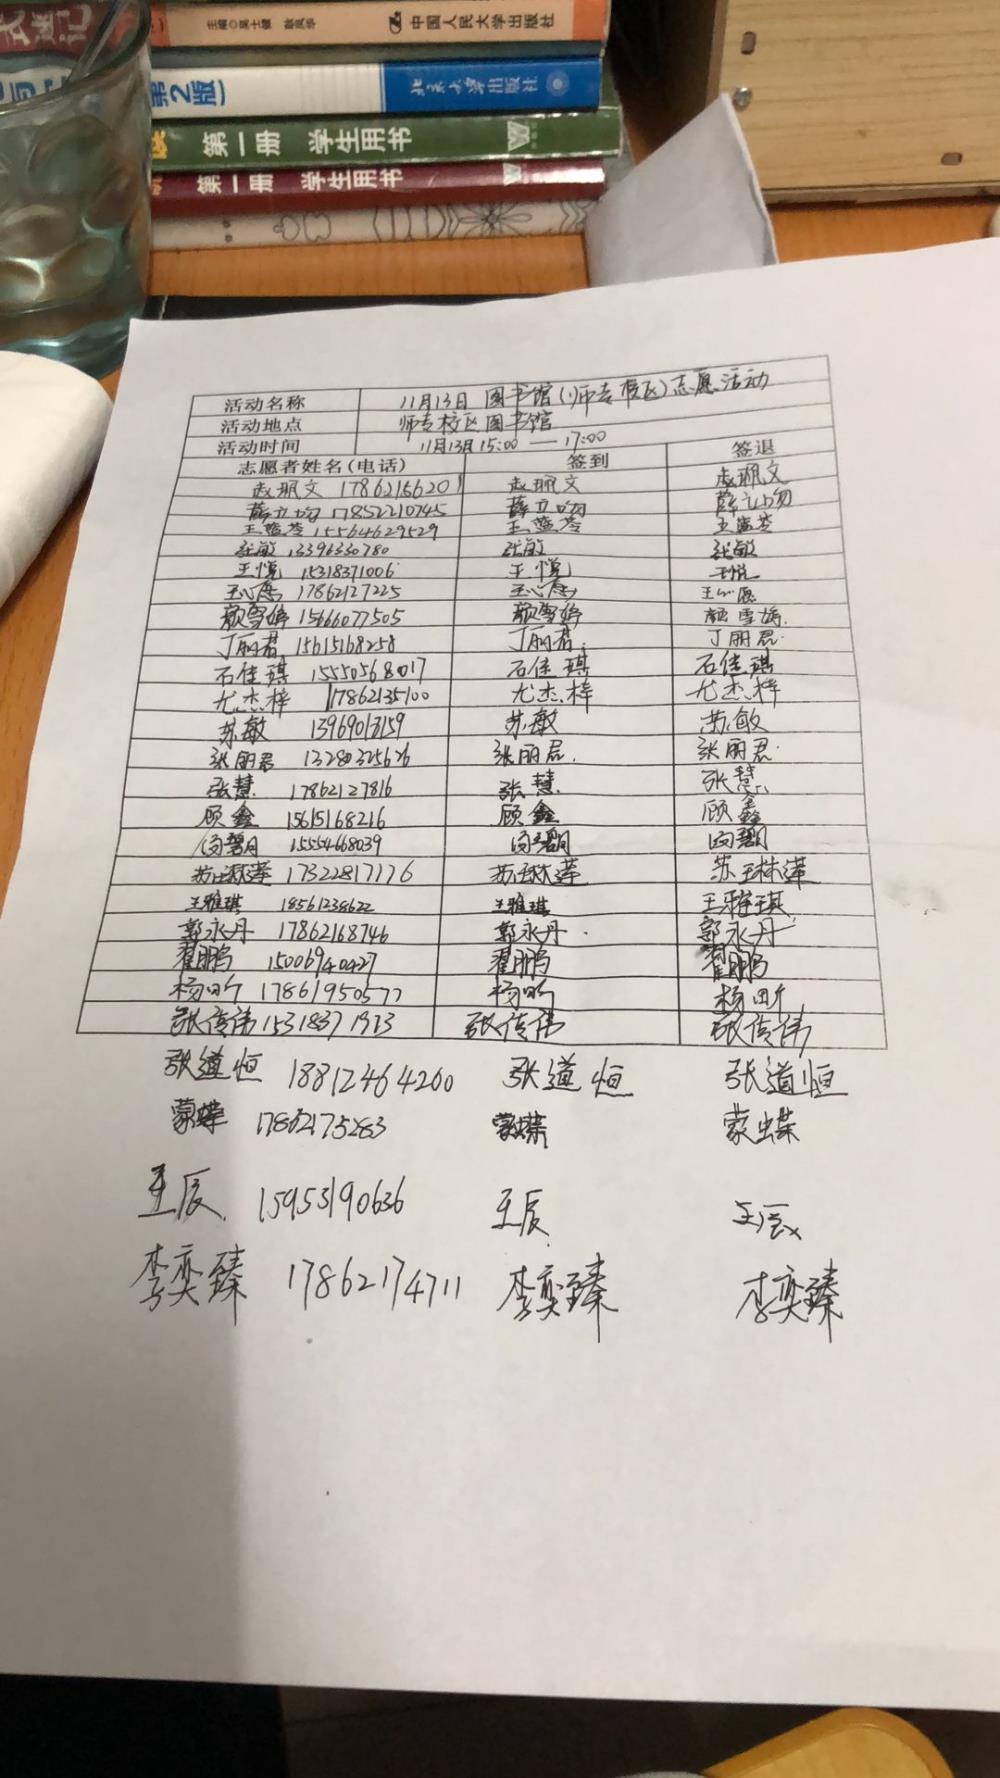 主编 吴士健 敖凤华 中国人民大学出版社
第2版 北京大学出版社
第一册 学生用书
第一册 学生用书
活动名称 11月13日 图书馆(师专校区)志愿活动
活动地点 师专校区图书馆
活动时间 11月13日 15:00 — 17:00
志愿者姓名(电话) 签到 签退
赵珮文 17862156201 赵珮文 赵珮文
薛立 17852210745 薛立 薛立
王蓝苓 15564629529 王蓝苓 王蓝苓
张敏 13396330780 张敏 张敏
王悦 15318371006 王悦 王悦
王心愿 17862127225 王心愿 王心愿
颜雪婷 15666077505 颜雪婷 颜雪婷
丁丽君 15615168258 丁丽君 丁丽君
石佳琪 15550568017 石佳琪 石佳琪
尤杰梓 17862135100 尤杰梓 尤杰梓
苏敏 13969013159 苏敏 苏敏
张丽君 13280325626 张丽君 张丽君
张慧 17862127816 张慧 张慧
顾鑫 15615168216 顾鑫 顾鑫
闵碧月 15554668039 闵碧月 闵碧月
苏琳莲 17322817176 苏琳莲 苏琳莲
王雅琪 18561238622 王雅琪 王雅琪
郭永丹 17862168746 郭永丹 郭永丹
翟鹏 15006940427 翟鹏 翟鹏
杨昕 17861950577 杨昕 杨昕
张传伟 15318371913 张传伟 张传伟
张道恒 18812464260 张道恒 张道恒
蒙蝶 17862175283 蒙蝶 蒙蝶
王辰 15953190636 王辰 王辰
李奕臻 17862174711 李奕臻 李奕臻